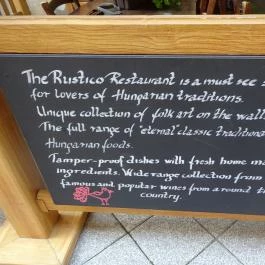 The Rustico Restaurant is a must see
for lovers of Hungarian traditions.
Unique collection of folk art on the wall
The full range of "eternal" classic traditional
Hungarian foods.
Tamper-proof dishes with fresh home ma
ingredients. Wide range collection from
famous and popular wines from around t
country.